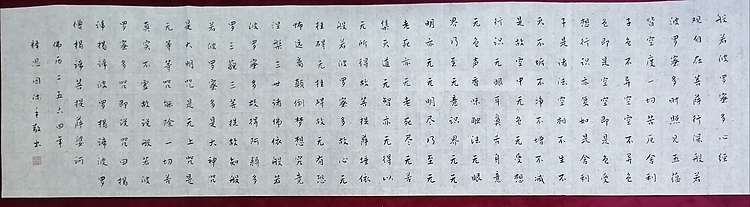 般若波罗蜜多心经
观自在菩萨行深般若
波罗蜜多时照见五蕴
皆空度一切苦厄舍利
子色不异空空不异色
色即是空空即是色受
想行识亦复如是舍利
子是诸法空相不生不
灭不垢不净不增不减
是故空中无色无受想
行识无眼耳鼻舌身意
无色声香味触法无眼
界乃至无意识界无无
明亦无无明尽乃至无
老死亦无老死尽无苦
集灭道无智亦无得以
无所得故菩提萨埵依
般若波罗蜜多故心无
挂碍无挂碍故无有恐
怖远离颠倒梦想究竟
涅槃三世诸佛依般若
波罗蜜多故得阿耨多
罗三藐三菩提故知般
若波罗蜜多是大神咒
是大明咒是无上咒是
无等等咒能除一切苦
真实不虚故说般若波
罗蜜多咒即说咒曰揭
谛揭谛波罗揭谛波罗
僧揭谛菩提萨婆诃
佛历二五六四年